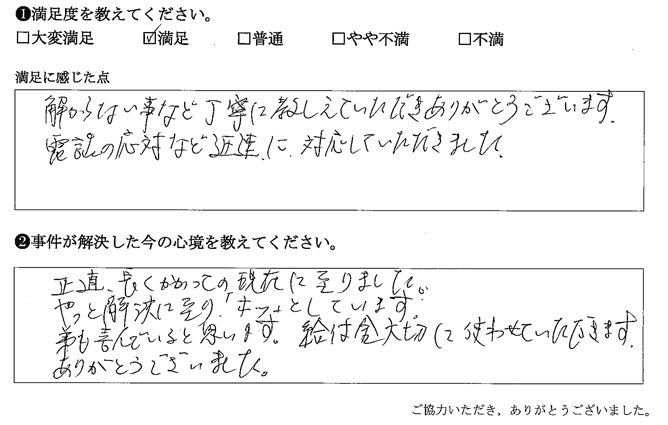 ❶満足度を教えてください。
□大変満足 ☑満足 □普通 □やや不満 □不満
満足に感じた点
解からない事など丁寧に教しえていただきありがとうございます。
電話の応対など迅速に対応していただきました。
❷事件が解決した今の心境を教えてください。
正直、長くかかっての現在に至りました。
やっと解決に至り「ホッ」としています。
弟も喜んでいると思います。給付金大切に使わせていただきます。
ありがとうございました。
ご協力いただき，ありがとうございました。